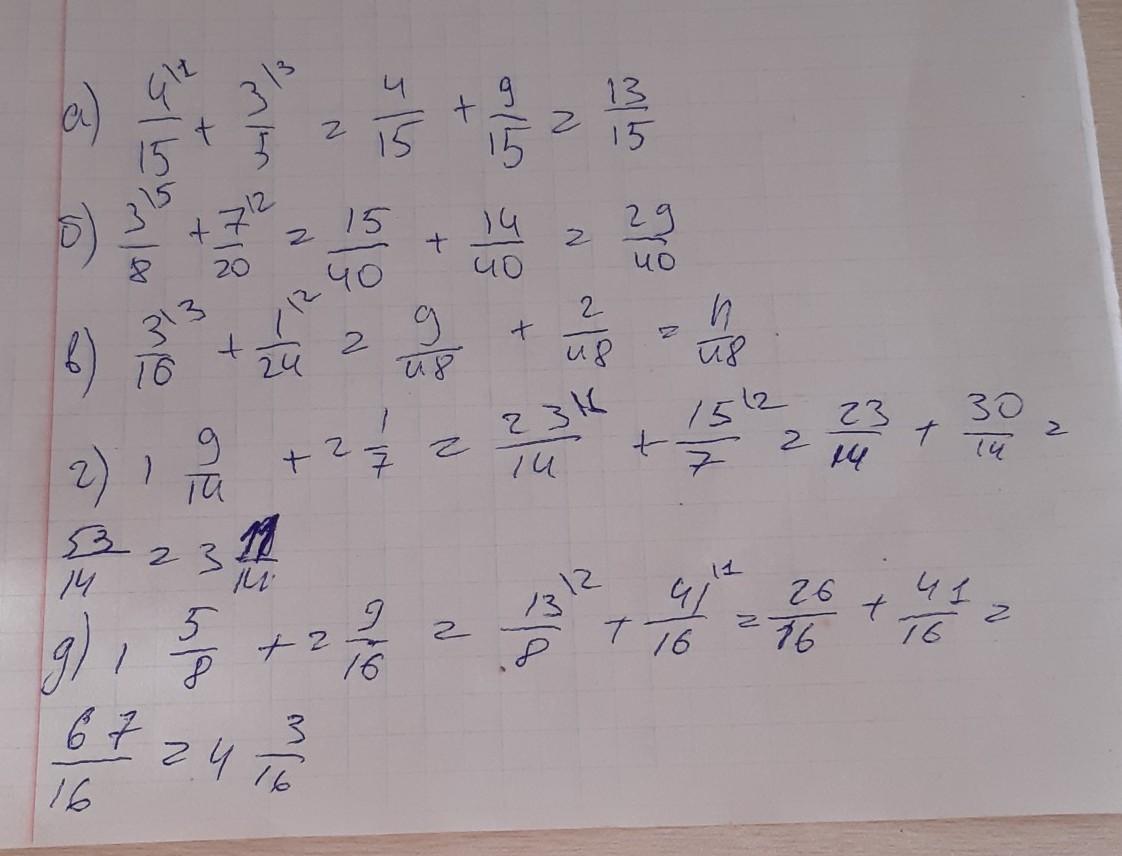 а) 4\1/15 + 3\3/5 = 4/15 + 9/15 = 13/15
б) 3\5/8 + 7\2/20 = 15/40 + 14/40 = 29/40
в) 3\3/16 + 1\2/24 = 9/48 + 2/48 = 11/48
г) 1 9/14 + 2 1/7 = 23\1/14 + 15\2/7 = 23/14 + 30/14 =
53/14 = 3 11/14
д) 1 5/8 + 2 9/16 = 13\2/8 + 41\1/16 = 26/16 + 41/16 =
67/16 = 4 3/16